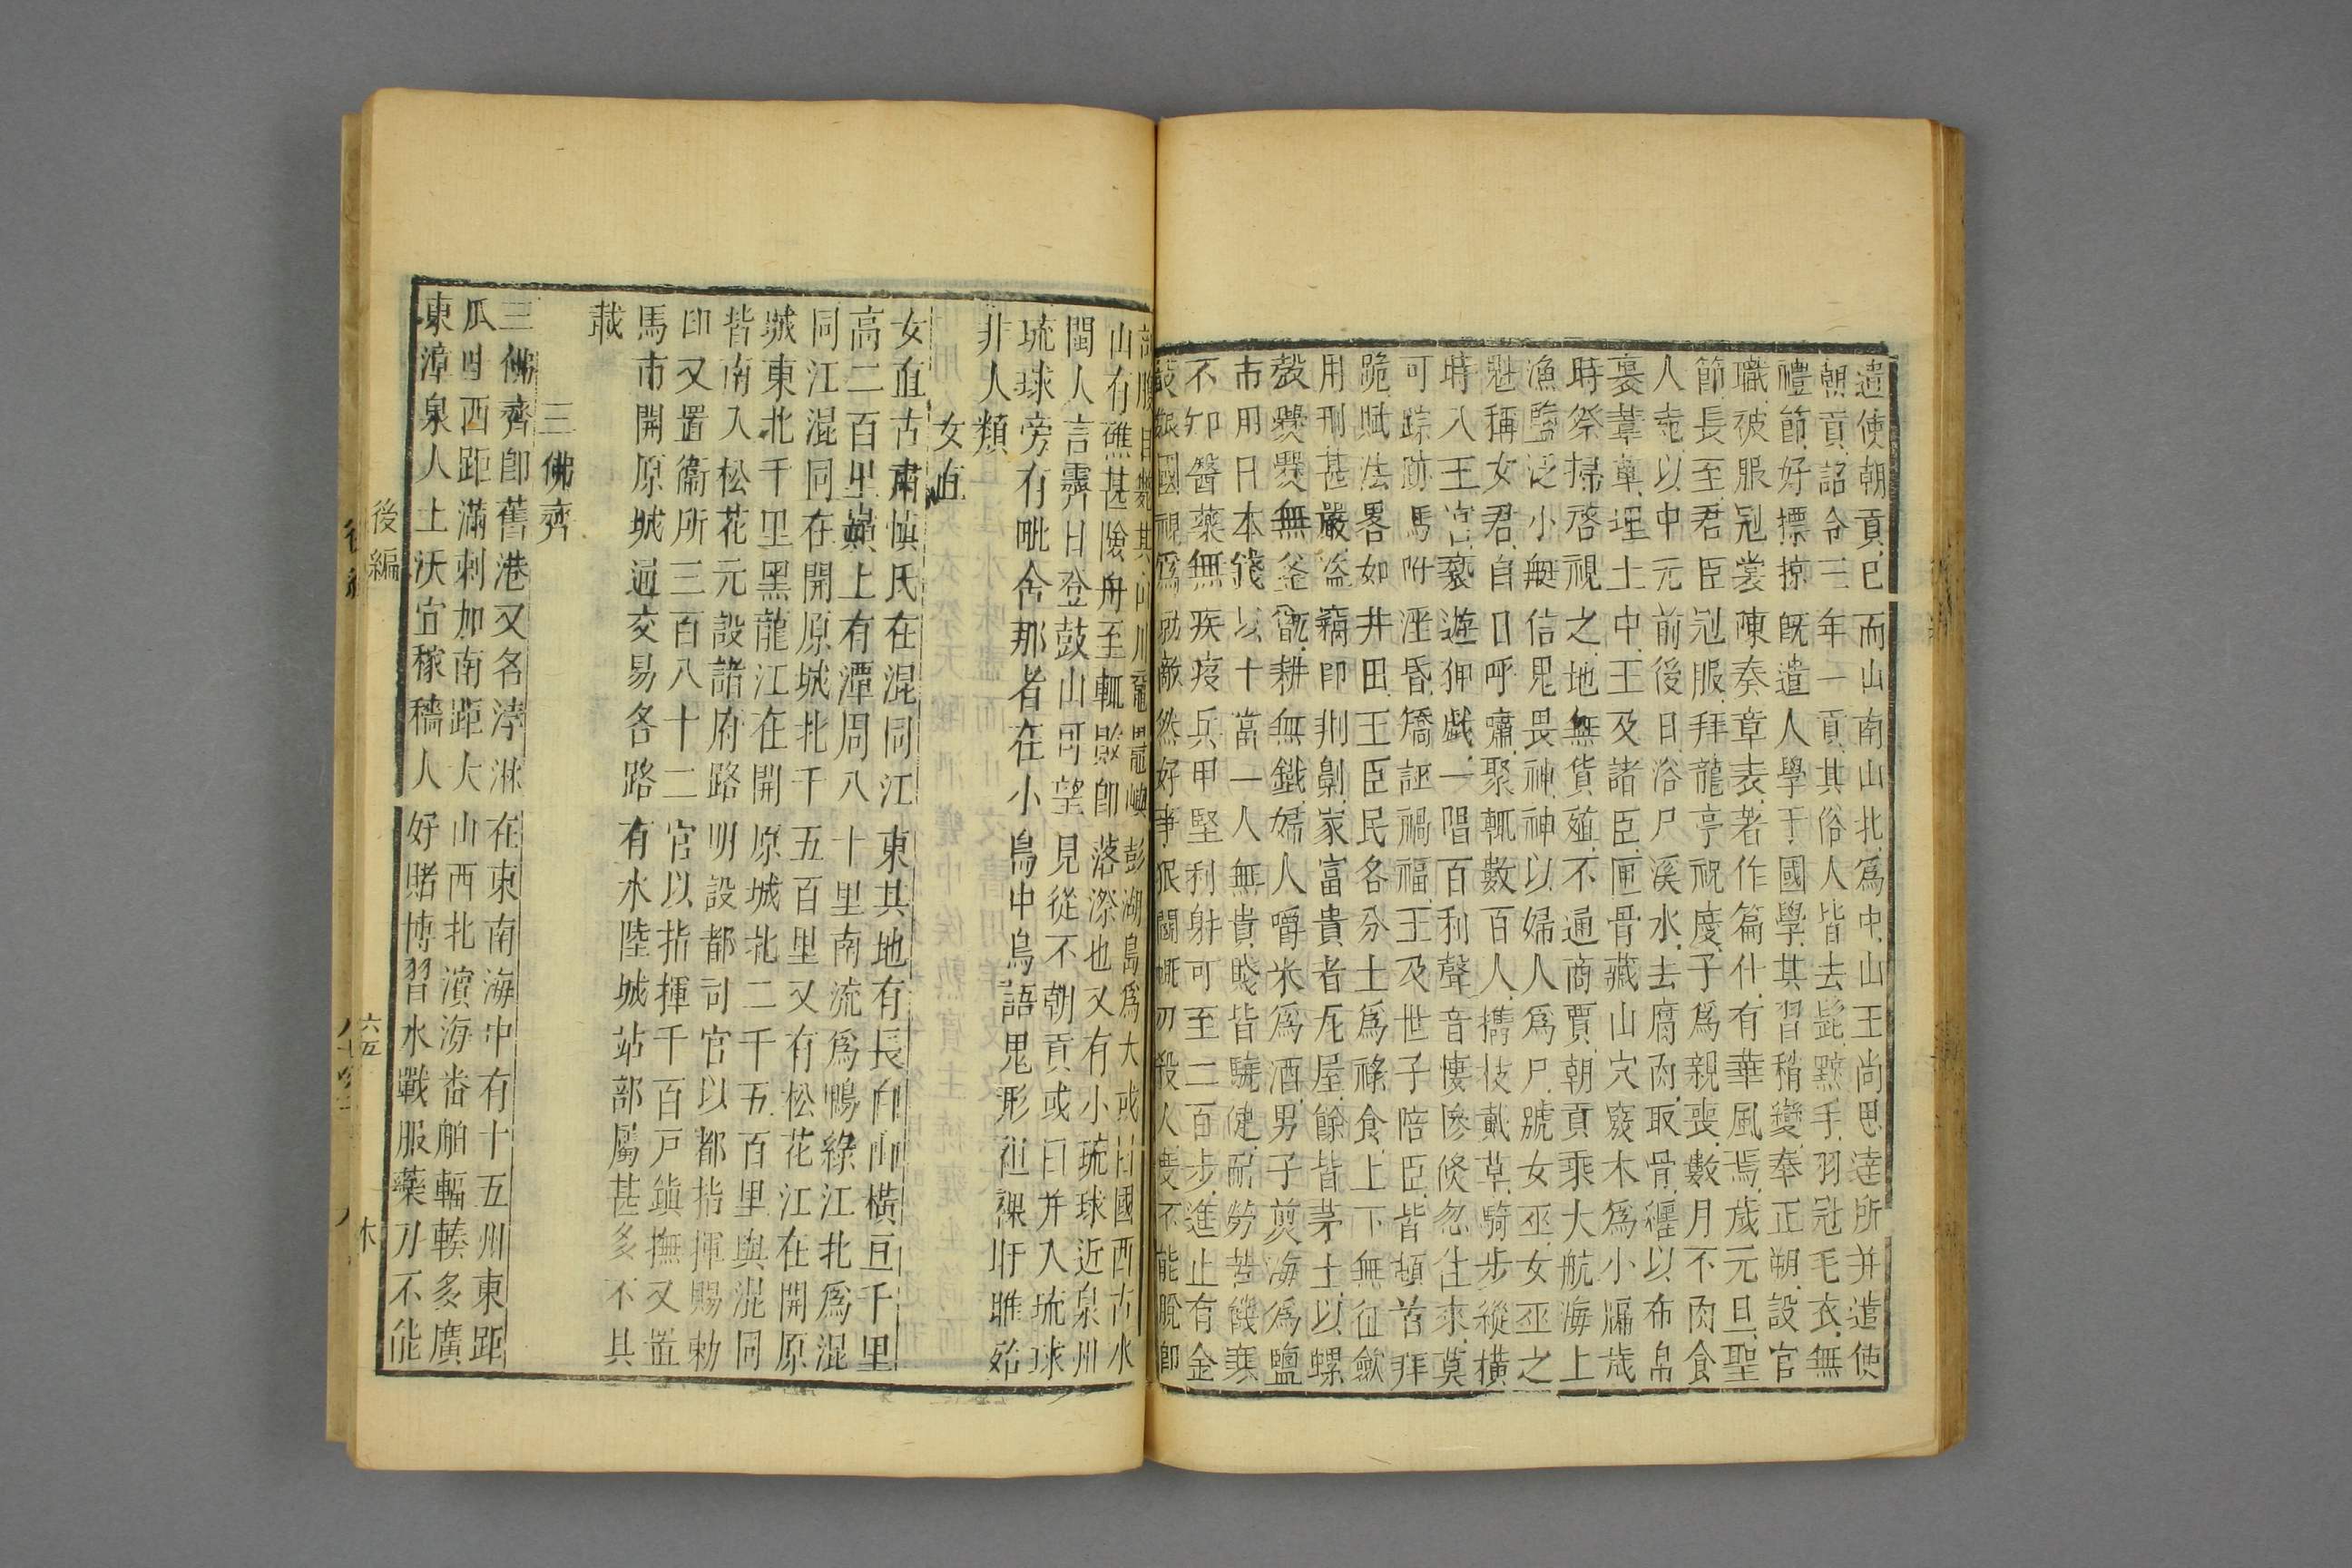 遣使朝貢已而山南山北為中山王尚思達所并遣使
朝貢詔令三年一貢其俗人皆去髭黥手羽冠毛衣無
禮節好摽掠既遣人學于國學其習稍變奉正朔設官
職被服冠裳陳奏章表著作篇什有華風焉歲元旦聖
節長至君臣冠服拜龍亭祝慶子為親喪數月不肉食
人死以中元前後日浴尸溪水去腐肉取骨纏以布帛
裹葦草埋土中王及諸臣匣骨藏山穴竅木為小牖歲
時祭掃啓視之地無貨殖不通商賈朝貢乘大航海上
漁鹽泛小艇信鬼畏神神以婦人為尸號女巫女巫之
魁稱女君自日呼嘯聚輒數百人攜枝戴草騎步縱橫
時入王宮褻遊狎戲一唱百和聲音悽慘倏忽往來莫
可踪跡馬附淫昏矯誣禍福王及世子陪臣皆頓首拜
跪賦法畧如井田王臣民各分土為祿食上下無征歛
用刑甚嚴盜竊即刖劓家富貴者瓦屋餘皆茅土以螺
殼爨爨無釜甑耕無鐵婦人嚼米為酒男子煎海為鹽
市用日本錢以十當一人無貴賤皆驍健耐勞苦饑寒
不知醫藥無疾疫兵甲堅利射可至二百步進止有金
鼓銀國視為勍敵然好爭狠鬭㡣刃殺人度不能脫卽
山有礁甚險舟至輒敗卽落漈也又有小琉球近泉州
閩人言霽日登鼓山可望見從不朝貢或曰并入琉球
琉球旁有毗舍那者在小島中鳥語鬼形袒裸盱睢殆
非人類
女直
女直古肅慎氏在混同江東其地有長白山橫亘千里
高二百里巔上有潭周八十里南流為鴨綠江北為混
同江混同在開原城北千五百里又有松花江在開原
城東北千里黑龍江在開原城北二千五百里與混同
皆南入松花元設諸府路明設都司官以都指揮賜勅
印又置衞所三百八十二官以指揮千百戶鎮撫又置
馬市開原城通交易各路有水陸城站部屬甚多不具
載
三佛齊
三佛齊卽舊港又名浡淋在東南海中有十五州東距
瓜哇西距滿剌加南距大山西北濱海番舶輻輳多廣
東漳泉人土沃宜稼穡人好賭博習水戰服藥刀不能
後編
六五